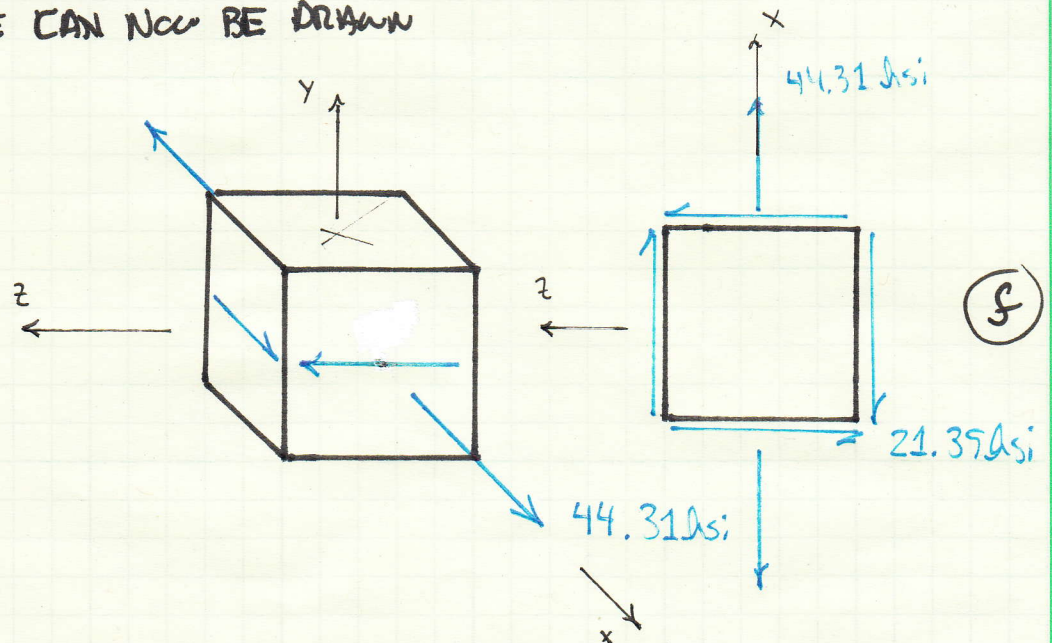 E CAN NOW BE DRAWN
X
44.31 ksi
Y
Z
Z
f
21.39 ksi
44.31 ksi
X